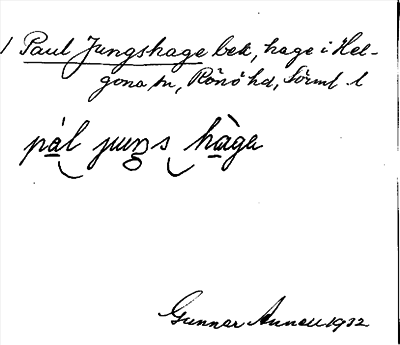 1 Paul Jungshage bek, hage i Hel-
gona sn, Rönö hd, Sörml. l
pàl juŋs hàga
Gunnar Annell 1932